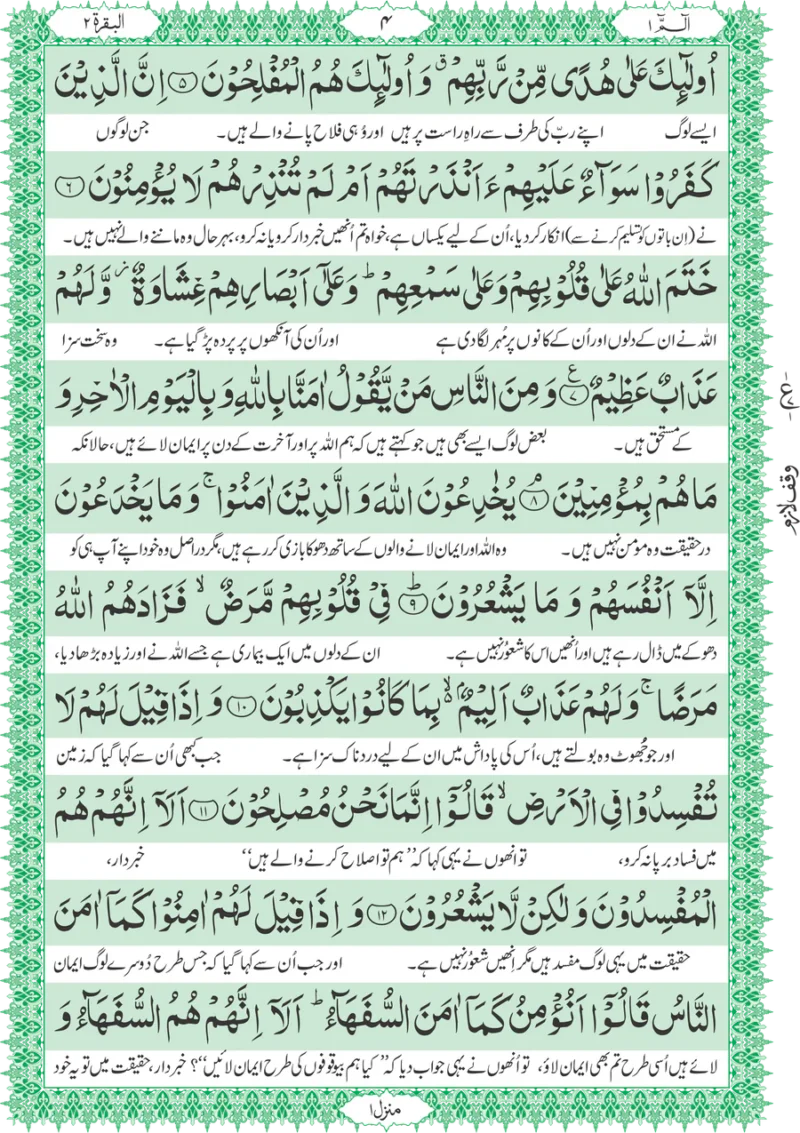 الٓمّٓ ۱
۴
البقرۃ ۲
اُولٰٓئِكَ عَلٰى هُدًى مِّنْ رَّبِّهِمْ ۗ وَ اُولٰٓئِكَ هُمُ الْمُفْلِحُوْنَ ۝۵ اِنَّ الَّذِيْنَ
ایسے لوگ اپنے ربّ کی طرف سے راہِ راست پر ہیں اور وُہی فلاح پانے والے ہیں۔ جن لوگوں
كَفَرُوْا سَوَآءٌ عَلَيْهِمْ ءَاَنْذَرْتَهُمْ اَمْ لَمْ تُنْذِرْهُمْ لَا يُؤْمِنُوْنَ ۝۶
نے (اِن باتوں کو تسلیم کرنے سے) انکار کر دیا، اُن کے لیے یکساں ہے، خواہ تم اُنھیں خبردار کرو یا نہ کرو، بہرحال وہ ماننے والے نہیں ہیں۔
خَتَمَ اللّٰهُ عَلٰى قُلُوْبِهِمْ وَعَلٰى سَمْعِهِمْ ؕ وَعَلٰٓى اَبْصَارِهِمْ غِشَاوَةٌ ز وَّلَهُمْ
اللہ نے ان کے دلوں اور اُن کے کانوں پر مُہر لگا دی ہے اور اُن کی آنکھوں پر پردہ پڑ گیا ہے۔ وہ سخت سزا
عَذَابٌ عَظِيْمٌ ۝۷ ع وَمِنَ النَّاسِ مَنْ يَّقُوْلُ اٰمَنَّا بِاللّٰهِ وَ بِالْيَوْمِ الْاٰخِرِ وَ
کے مستحق ہیں۔ بعض لوگ ایسے بھی ہیں جو کہتے ہیں کہ ہم اللہ پر اور آخرت کے دن پر ایمان لائے ہیں، حالانکہ
مَا هُمْ بِمُؤْمِنِيْنَ ۝۸ۘ يُخٰدِعُوْنَ اللّٰهَ وَ الَّذِيْنَ اٰمَنُوْا ۚ وَ مَا يَخْدَعُوْنَ
درحقیقت وہ مومن نہیں ہیں۔ وہ اللہ اور ایمان لانے والوں کے ساتھ دھوکا بازی کر رہے ہیں، مگر دراصل وہ خود اپنے آپ ہی کو
اِلَّآ اَنْفُسَهُمْ وَ مَا يَشْعُرُوْنَ ۝۹ؕ فِيْ قُلُوْبِهِمْ مَّرَضٌ ۙ فَزَادَهُمُ اللّٰهُ
دھوکے میں ڈال رہے ہیں اور اُنھیں اس کا شعوُر نہیں ہے۔ ان کے دلوں میں ایک بیماری ہے جسے اللہ نے اور زیادہ بڑھا دیا،
مَرَضًا ۚ وَلَهُمْ عَذَابٌ اَلِيْمٌۢ ۙ بِمَا كَانُوْا يَكْذِبُوْنَ ۝۱۰ وَ اِذَا قِيْلَ لَهُمْ لَا
اور جو جُھوٹ وہ بولتے ہیں، اُس کی پاداش میں ان کے لیے دردناک سزا ہے۔ جب کبھی اُن سے کہا گیا کہ زمین
تُفْسِدُوْا فِي الْاَرْضِ ۙ قَالُوْٓا اِنَّمَا نَحْنُ مُصْلِحُوْنَ ۝۱۱ اَلَآ اِنَّهُمْ هُمُ
میں فساد برپا نہ کرو، تو انھوں نے یہی کہا کہ ”ہم تو اصلاح کرنے والے ہیں“ خبردار،
الْمُفْسِدُوْنَ وَ لٰكِنْ لَّا يَشْعُرُوْنَ ۝۱۲ وَ اِذَا قِيْلَ لَهُمْ اٰمِنُوْا كَمَآ اٰمَنَ
حقیقت میں یہی لوگ مفسد ہیں مگر اِنھیں شعوُر نہیں ہے۔ اور جب اُن سے کہا گیا کہ جس طرح دُوسرے لوگ ایمان
النَّاسُ قَالُوْٓا اَنُؤْمِنُ كَمَآ اٰمَنَ السُّفَهَآءُ ؕ اَلَآ اِنَّهُمْ هُمُ السُّفَهَآءُ وَ
لائے ہیں اُسی طرح تم بھی ایمان لاؤ، تو اُنھوں نے یہی جواب دیا کہ ”کیا ہم بیوقوفوں کی طرح ایمان لائیں“؟ خبردار، حقیقت میں تو یہ خود
وقف لازم
منزل ۱